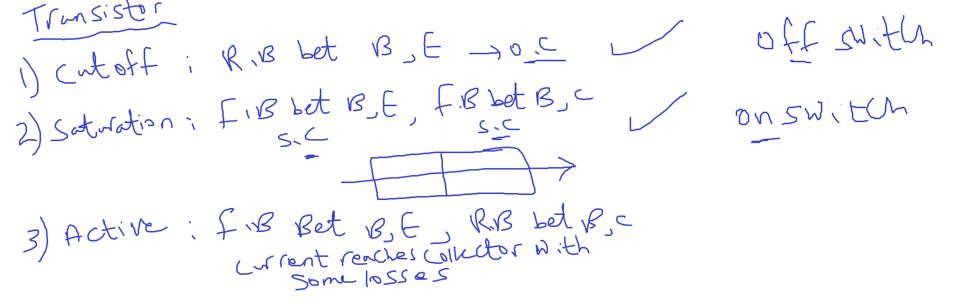 Transistor
1) Cutoff : R.B bet B,E → O.C off switch
2) Saturation : F.B bet B,E, F.B bet B,C on switch
S.C S.C
3) Active : F.B Bet B,E, R.B bet B,C
Current reaches Collector with
Some losses